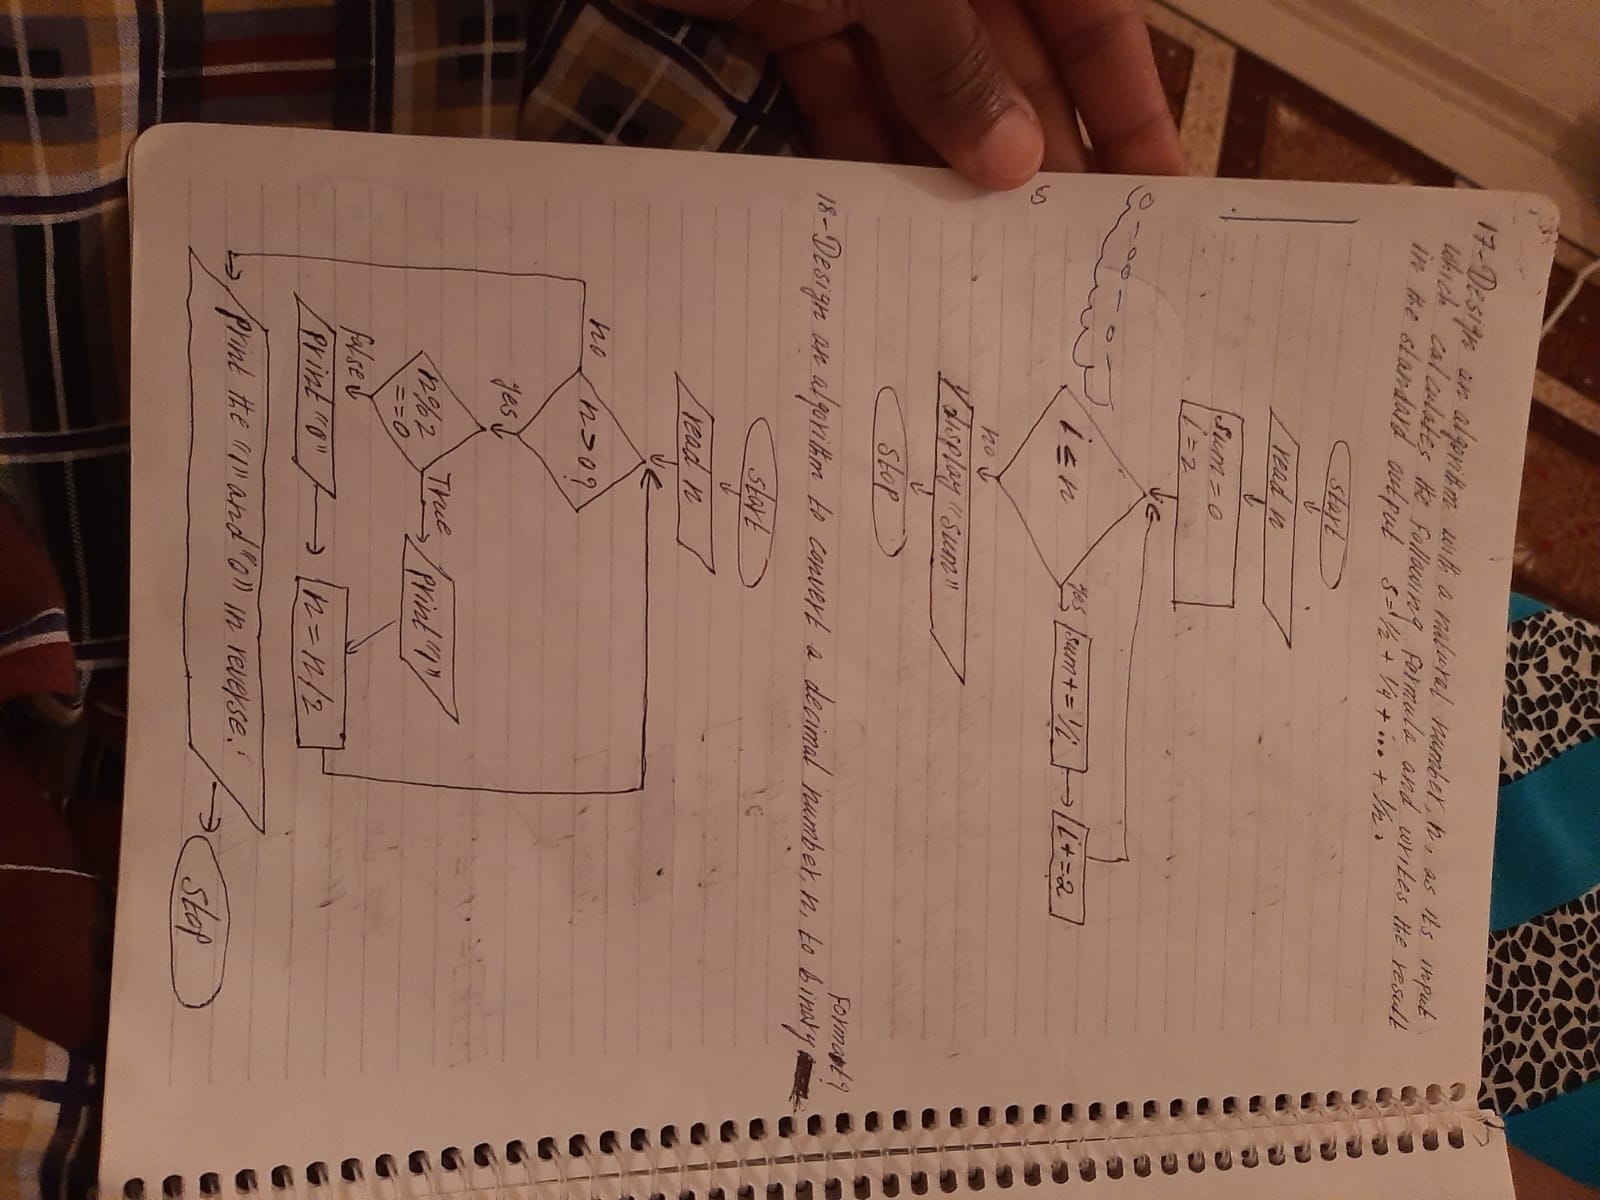 17-Design an algorithm with a natural number, n, as its input
which calculates the following formula and writes the result
in the standard output S=1/2 + 1/4 + ... + 1/n.
start
read n
sum = 0
i = 2
i ≤ n
yes
sum+=1/i
i+=2
no
display "sum"
stop
18-Design an algorithm to convert a decimal number, n, to binary
format?
start
read n
n>0?
no
yes
n%2
==0
True
print "1"
false
print "0"
n = n/2
print the "1" and "0" in reverse.
stop